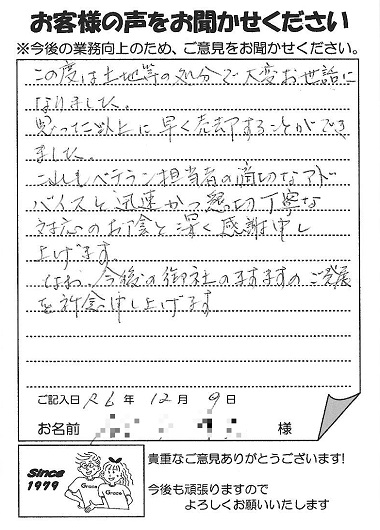 お客様の声をお聞かせください
※今後の業務向上のため、ご意見をお聞かせください。
この度は土地等の処分で大変お世話に
なりました。
思った以上に早く売却することができ
ました。
これもベテラン担当者の適切なアド
バイスと迅速かつ懇切丁寧な
対応のお陰と深く感謝申し
上げます。
なお、今後の御社のますますのご発展
を祈念申し上げます
ご記入日 R6 年 12 月 9 日
お名前 様
Since
1979
Grace
Grace
貴重なご意見ありがとうございます!
今後も頑張りますので
よろしくお願いいたします